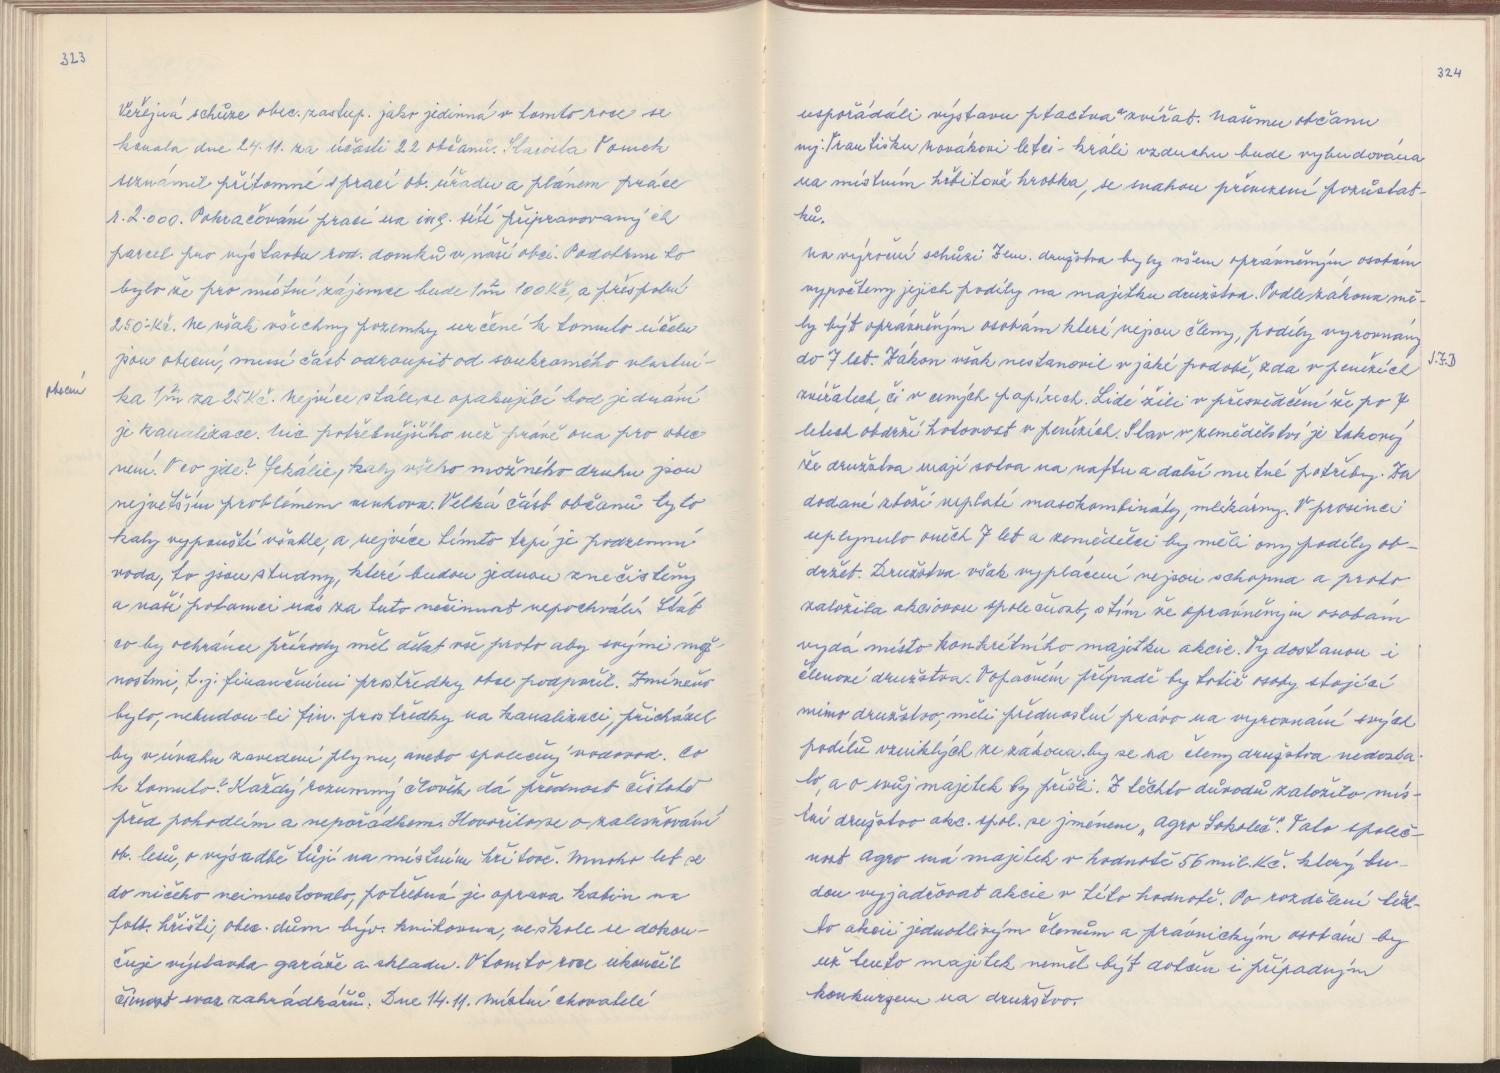 323
Veřejná schůze obec. zastup. jako jedinná v tomto roce se
konala dne 24.11. za účasti 22 občanů. Starosta Tomek
seznámil přítomné s prací ob. úřadu a plánem práce
r. 2.000. Pokračování prací na ing. sítí připravovaných
parcel pro výstavbu rod. domků v naší obci. Podotknuto
bylo že pro místní zájemce bude 1m 100Kč, a přespolní
250.-Kč. Ne však všechny pozemky určené k tomuto účelu
jsou obecní, musí část odkoupit od soukromého vlastní-
obecní
ka 1m za 25Kč. Nejvíce stále se opakující bod jednání
je kanalizace. Nic potřebnějšího než právě ona pro obec
není. O co jde? Fekálie, kaly všeho možného druhu jsou
největším problémem venkova. Velká část občanů tyto
kaly vypouští všude, a nejvíce tímto trpí je podzemní
voda, to jsou studny, které budou jednou znečistěny
a naší potomci nás za tuto nečinnost nepochválí. Stát
co by ochránce přírody měl dělat vše proto aby svými mož-
nostmi, t.j. finančními prostředky obce podpořil. Zmíněno
bylo, nebudou-li fin. prostředky na kanalizaci, přicházel
by v úvahu zavedení plynu, anebo společný vodovod. Co
k tomuto? Každý rozumný člověk dá přednost čistotě
před pohodlím a nepořádkem. Hovořilo se o zalesňování
ob. lesů, o výsadbě tůjí na místním hřitově. Mnoho let se
do ničeho neinvestovalo, potřebná je oprava kabin na
fotb. hřišti, obec. dům býv. knihovna, ve škole se dokon-
čuje výstavba garáže a skladu. V tomto roce ukončil
činnost svaz zahrádkářů. Dne 14.11. místní chovatelé
324
uspořádali výstavu ptactva a zvířat. Našemu občanu
mj. Františku Novákovi letci - králi vzduchu bude vybudována
na místním hřbitově hrobka, se snahou převezení pozůstat-
ků.
Na výroční schůzi Zem. družstva byly všem oprávněným osobám
vypočteny jejich podíly na majetku družstva. Podle zákona mě-
ly být oprávněným osobám které nejsou členy, podíly vyrovnány
do 7 let. Zákon však nestanovil v jaké podobě, zda v penězích
J.Z.D
zvířatech, či v cených papírech. Lidé žili v přesvědčení že po 7
letech obdrží hotovost v penězích. Stav v zemědělství je takový
že družstva mají sotva na naftu a další nutné potřeby. Za
dodané zboží neplatí masokombináty, mlékárny. V prosinci
uplynulo oněch 7 let a zemědělci by měli ony podíly ob-
držet. Družstva však vyplácení nejsou schopna a proto
založila akciovou společnost, s tím že oprávněným osobám
vydá místo konkrétního majetku akcie. Ty dostanou i
členové družstva. V opačném případě by totiž osoby stojící
mimo družstvo, měli přednostní právo na vyrovnání svých
podílů vzniklých ze zákona. by se na členy družstva nedosta-
lo, a o svůj majetek by přišli. Z těchto důvodů založilo mís-
tní družstvo akc. spol. se jménem „Agro Sokoleč". Tato společ-
nost Agro má majetek v hodnotě 56 mil. Kč. který bu-
dou vyjadřovat akcie v této hodnotě. Po rozdělení těch-
to akcií jednotlivým členům a právnickým osobám by
už tento majetek neměl být dotčen i případným
konkurzem na družstvo.